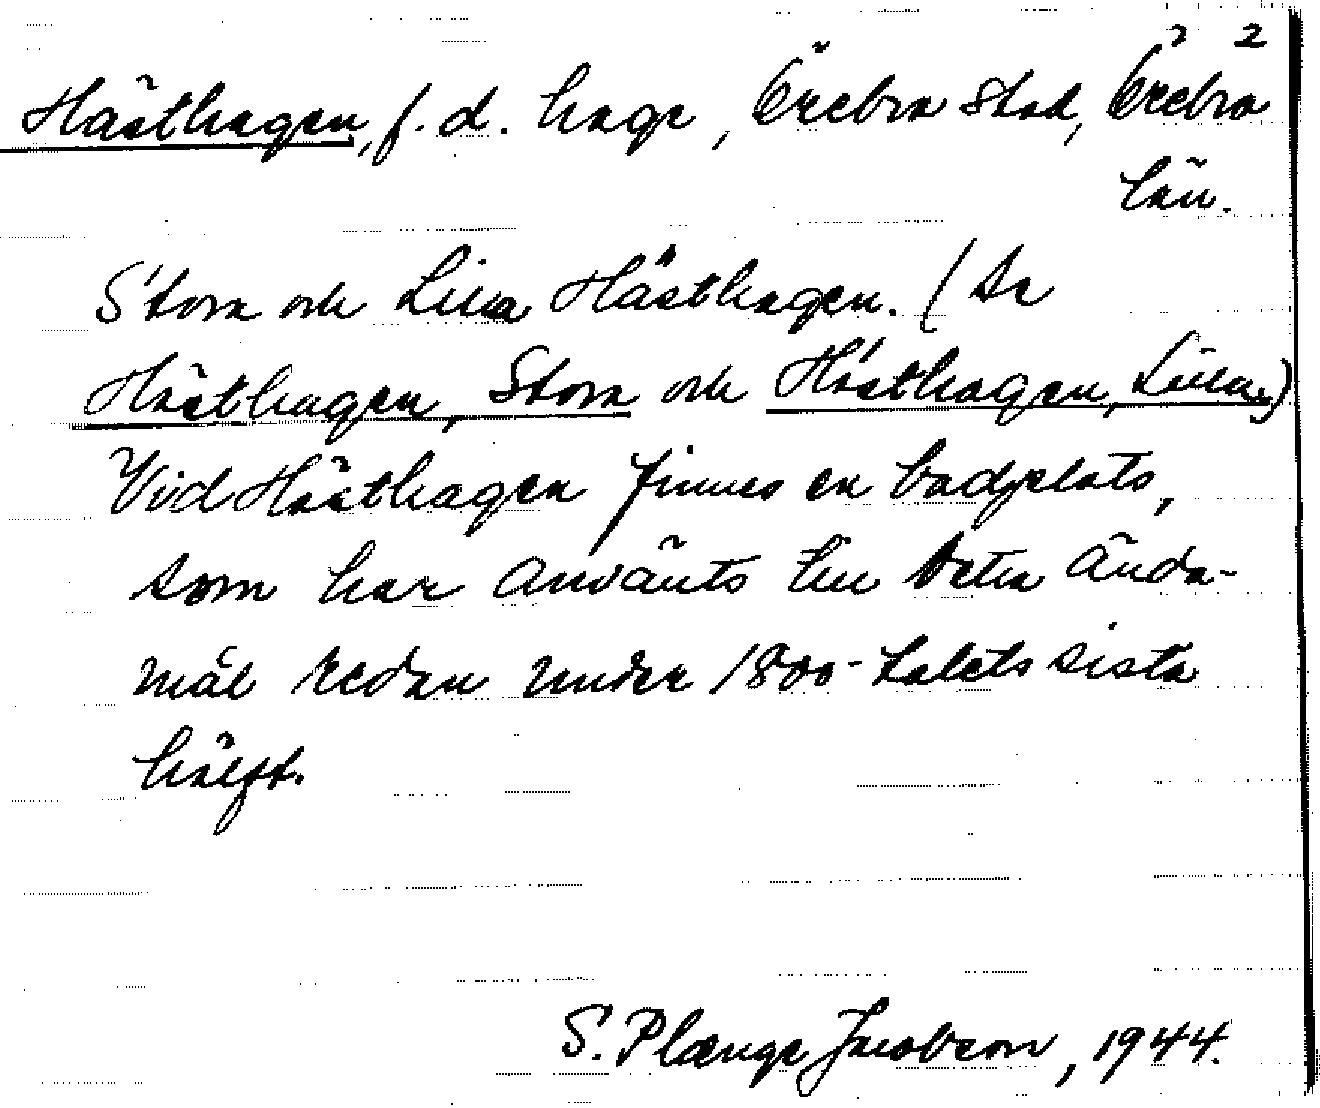 2
Hästhagen, f.d. hage, Örebro stad, Örebro
län.
Stora och Lilla Hästhagen. (Se
Hästhagen, Stora och Hästhagen, Lilla.)
Vid Hästhagen finnes en badplats,
som har använts till detta ända-
mål redan under 1800-talets sista
hälft.
S. Plænge Jacobson, 1944.